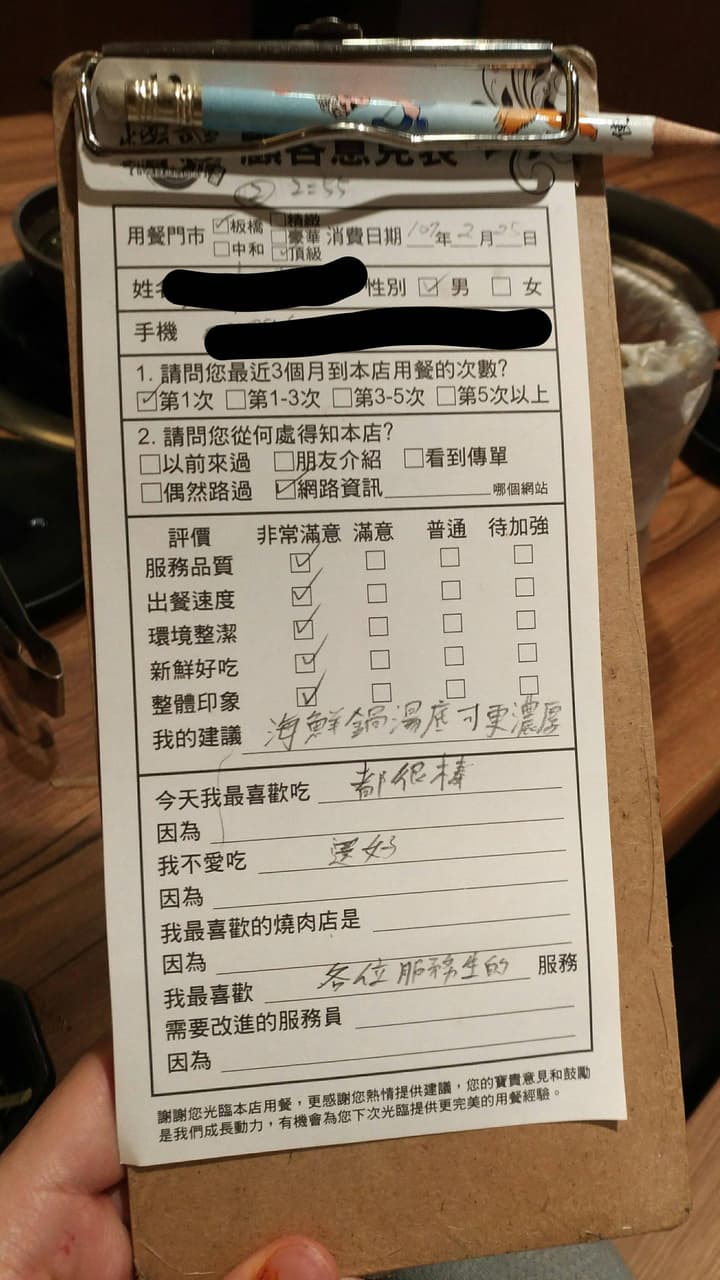 顧客意見表
② 2=55
用餐門市 ☑板橋 □中和 □精緻 □豪華 ☑頂級 消費日期 107年2月25日
姓名 性別 ☑男 □女
手機
1. 請問您最近3個月到本店用餐的次數?
☑第1次 □第1-3次 □第3-5次 □第5次以上
2. 請問您從何處得知本店?
□以前來過 □朋友介紹 □看到傳單
□偶然路過 ☑網路資訊 哪個網站
評價 非常滿意 滿意 普通 待加強
服務品質 ☑ □ □ □
出餐速度 ☑ □ □ □
環境整潔 ☑ □ □ □
新鮮好吃 ☑ □ □ □
整體印象 ☑ □ □ □
我的建議 海鮮鍋湯底可更濃厚
今天我最喜歡吃 都很棒
因為
我不愛吃 還好
因為
我最喜歡的燒肉店是
因為
我最喜歡 各位服務生的 服務
需要改進的服務員
因為
謝謝您光臨本店用餐，更感謝您熱情提供建議，您的寶貴意見和鼓勵
是我們成長動力，有機會為您下次光臨提供更完美的用餐經驗。